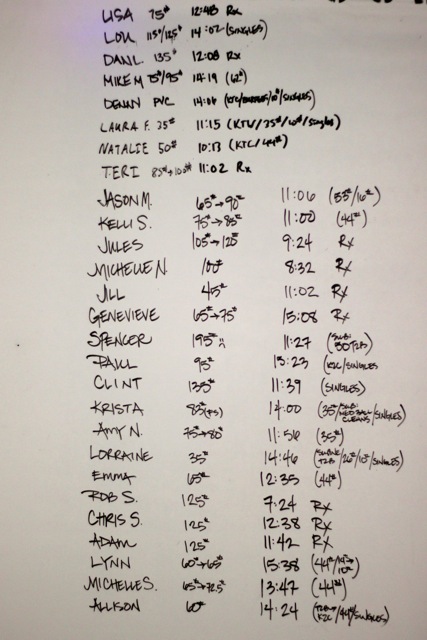 LISA 75# 12:48 Rx
LOU 115#/125# 14:02 (SINGLES)
DAN L. 135# 12:08 Rx
MIKE M 75#/95# 14:19
DENNY PVC 14:06
LAURA F. 35# 11:15 (KTC/35#/10#/SINGLES)
NATALIE 50# 10:13 (KTC/44#)
TERI 85#→100# 11:02 Rx
JASON M. 65#→90# 11:06 (35#/16#)
KELLI S. 75#→85# 11:00 (44#)
JULES 105#→120# 9:24 Rx
MICHELLE N. 100# 8:32 Rx
JILL 45# 11:02 Rx
GENEVIEVE 65#→75# 15:08 Rx
SPENCER 195# 11:27
PAUL 95# 13:23 (K2C/SINGLES)
CLINT 135# 11:39 (SINGLES)
KRISTA 85#(75) 14:00
AMY N. 75#→80# 11:56 (35#)
LORRAINE 35# 14:46
EMMA 65# 12:35 (44#)
ROB S. 125# 7:24 Rx
CHRIS S. 125# 12:38 Rx
ADAM 125# 11:42 Rx
LYNN 60#→65# 15:38
MICHELLE S. 65#→72.5# 13:47 (44#)
ALLISON 60# 14:24